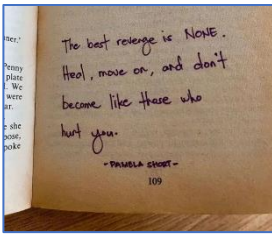 ner.'
Penny
plate
l. We
were
ar.
e she
pose,
poke
The best revenge is NONE.
Heal, move on, and don't
become like those who
hurt you.
- PAMELA SHORT -
109